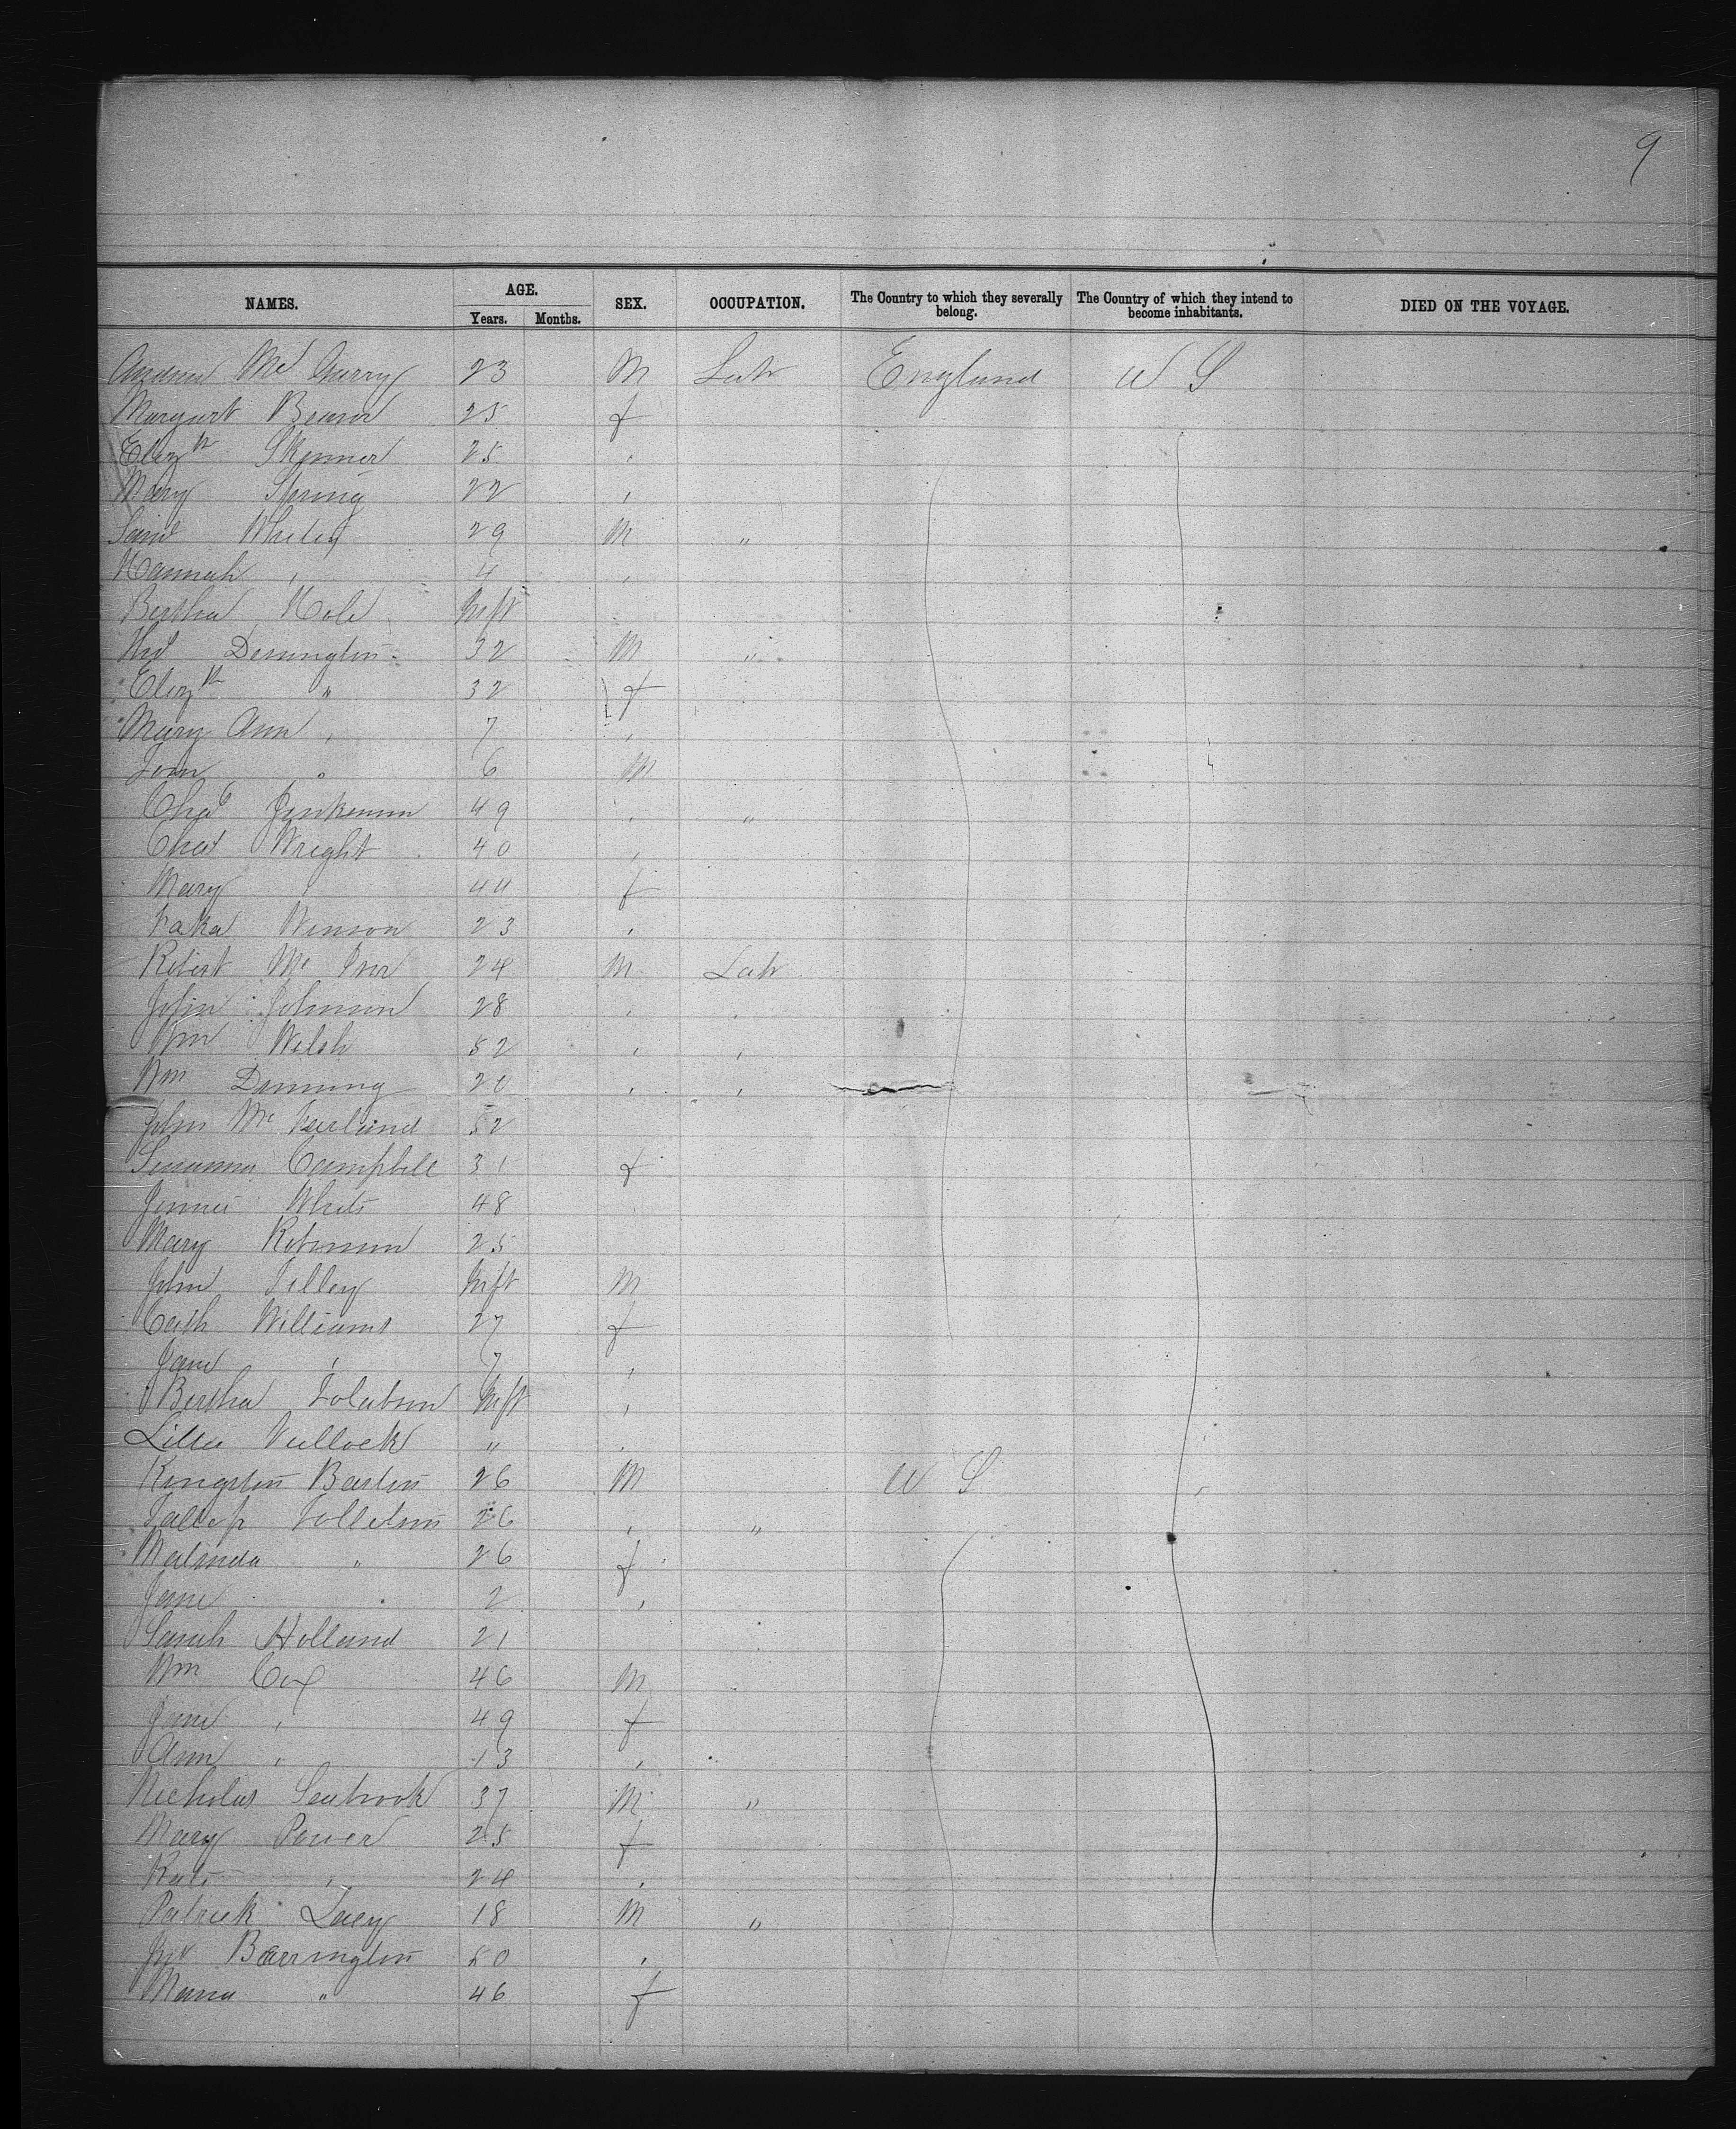 9
NAMES. AGE. Years. Months. SEX. OCCUPATION. The Country to which they severally belong. The Country of which they intend to become inhabitants. DIED ON THE VOYAGE.
Andrew Mc Garry 23 M Labr England U S
Margart 25 f
Elizth Skinner 25 "
Mary Spring 22 "
29 M "
Hannah " 4 "
Bertha Inft
Dennington 32 M "
Elizth " 32 f
Mary Ann " 7 "
Tom " 6 M
Chas Jenkinson 49 " "
Chas Wright 40 "
Mary " 44 f
Winson 23 "
Robert Mc 24 M Labr
John Johnson 28 " "
Wm Welsh 52 " "
Wm Denning 20 " "
John Mc 52
Susanna Campbell 31 f
Jennie White 48
Mary Robinson 25
John Tilley Inft M
Cath Williams 27 f
Jane " 7 "
Bertha Inft "
" "
Kingston Barton 26 M U S
Tollefson 26 " "
Malinda " 26 f
Jane " 2 "
Sarah Holland 21
Wm Cox 46 M
Jane " 49 f
Ann " 13 "
Nicholas Seabrook 37 M "
Mary Power 25 f
Kate " 24 "
Patrick Lacy 18 M "
Jno Barrington 50 "
Maria " 46 f